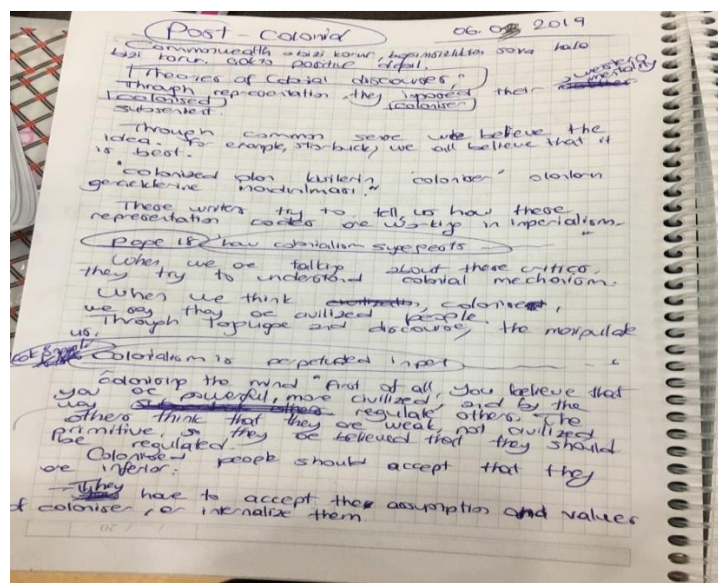 Post-Colonial 06.03 2019
Commonwealth bizi korur, sona
bizi korur, positive
"Theories of Colonial discourses" western
Through representation they imposed their mentality
colonised coloniser
Through common sense we believe the
idea. For example, starbucks, we all believe that it
is best.
"colonized olan kisilerin "coloniser" olanların
gerçeklerine inandırılması."
These writers try to tell us how these
representation codes are working in imperialism.
Page 18 how colonialism
When we are talking about these critics,
they try to understand colonial mechanism.
When we think coloniser,
we say they are civilized people.
Through language and discourse, the manipulate
us.
Colonialism is perpetuted in part
colonising the mind "First of all, you believe that
you are powerful, more civilized and by the
way regulate others. The
others think that they are weak, not civilized
primitive so they are believed that they should
be regulated.
Colonised people should accept that they
are inferior.
They have to accept the assumption and values
of coloniser, or internalize them.